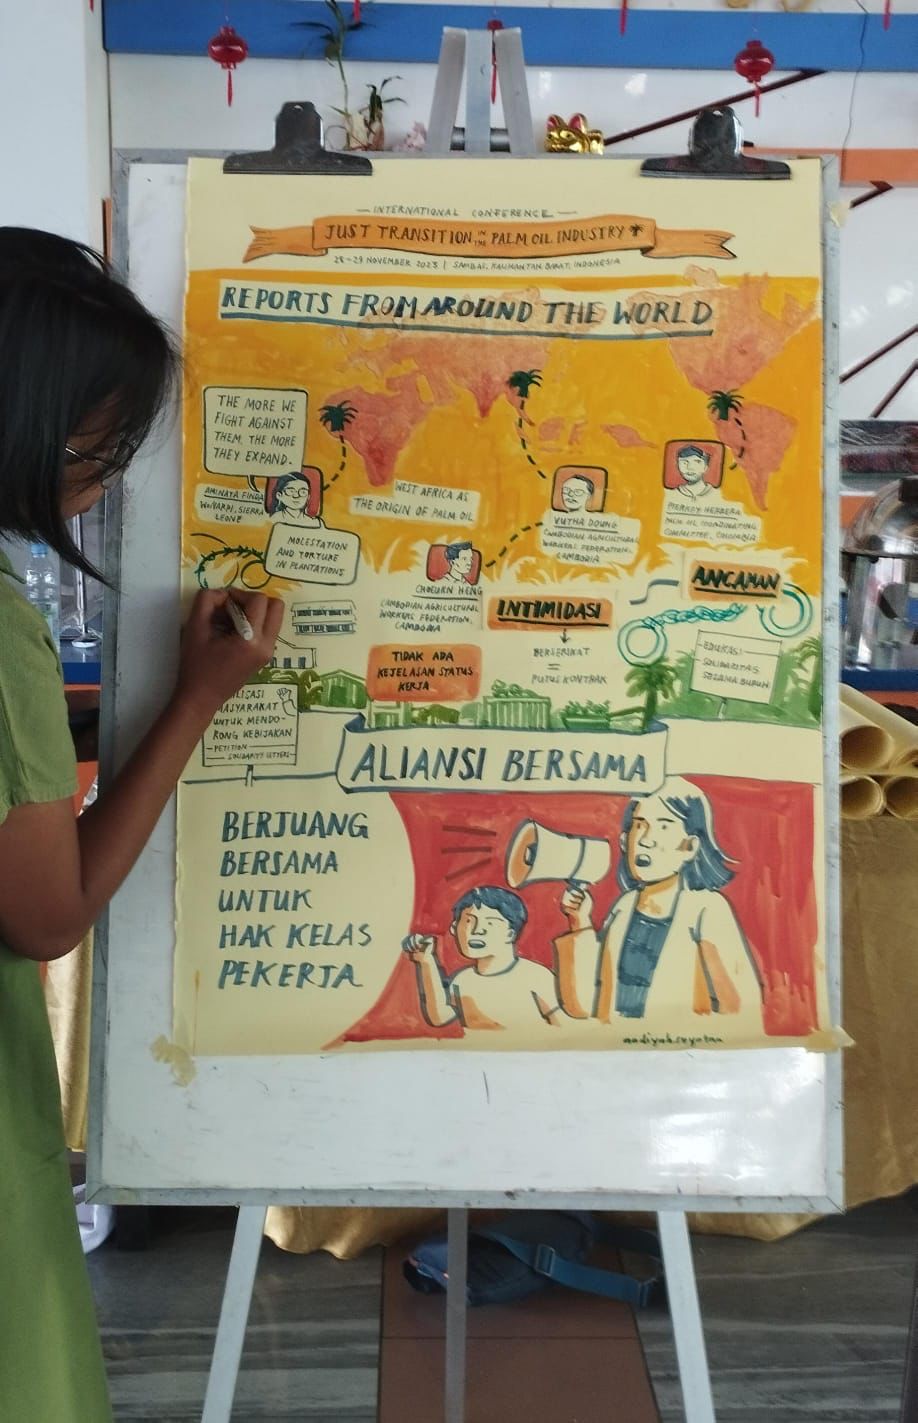 INTERNATIONAL CONFERENCE
JUST TRANSITION IN THE PALM OIL INDUSTRY
28-29 NOVEMBER 2023 | SAMBAS, KALIMANTAN BARAT, INDONESIA
REPORTS FROM AROUND THE WORLD
THE MORE WE
FIGHT AGAINST
THEM, THE MORE
THEY EXPAND.
AMINATA FINDA
SIERRA
LEONE
MOLESTATION
AND TORTURE
IN PLANTATIONS
WEST AFRICA AS
THE ORIGIN OF PALM OIL
CHOEURN HENG
CAMBODIAN AGRICULTURAL
WORKERS FEDERATION,
CAMBODIA
VUTHA DOUNG
CAMBODIAN AGRICULTURAL
WORKERS FEDERATION,
CAMBODIA
HERRERA
PALM OIL COORDINATING
COMMITTEE, COLOMBIA
TIDAK ADA
KEJELASAN STATUS
KERJA
INTIMIDASI
BERSERIKAT
=
PUTUS KONTRAK
ANCAMAN
EDUKASI
SOLIDARITAS
SESAMA BURUH
MASYARAKAT
UNTUK MENDO-
RONG KEBIJAKAN
- PETITION
- SOLIDARITY LETTERS
ALIANSI BERSAMA
BERJUANG
BERSAMA
UNTUK
HAK KELAS
PEKERJA